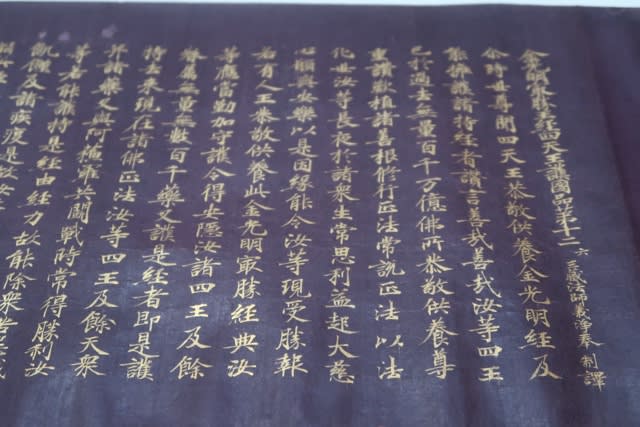 金光明最勝王經四天王護國品第十二 六 三藏法師義淨奉 制譯
尒時世尊聞四天王恭敬供養金光明經及
能擁護諸持經者讚言善哉善哉汝等四王
已於過去無量百千万億佛所恭敬供養尊
重讚歎植諸善根修行正法常說正法以法
化世汝等長夜於諸衆生常思利益起大慈
心願與安樂以是因緣能令汝等現受勝報
若有人王恭敬供養此金光明最勝經典汝
等應當勤加守護令得安隱汝諸四王及餘
眷屬無量無數百千藥叉護是經者即是護
持去來現在諸佛正法汝等四王及餘天衆
并諸藥叉與阿蘇羅共鬪戰時常得勝利汝
等若能護持是經由經力故能除衆苦
飢饉及諸疾疫是故汝